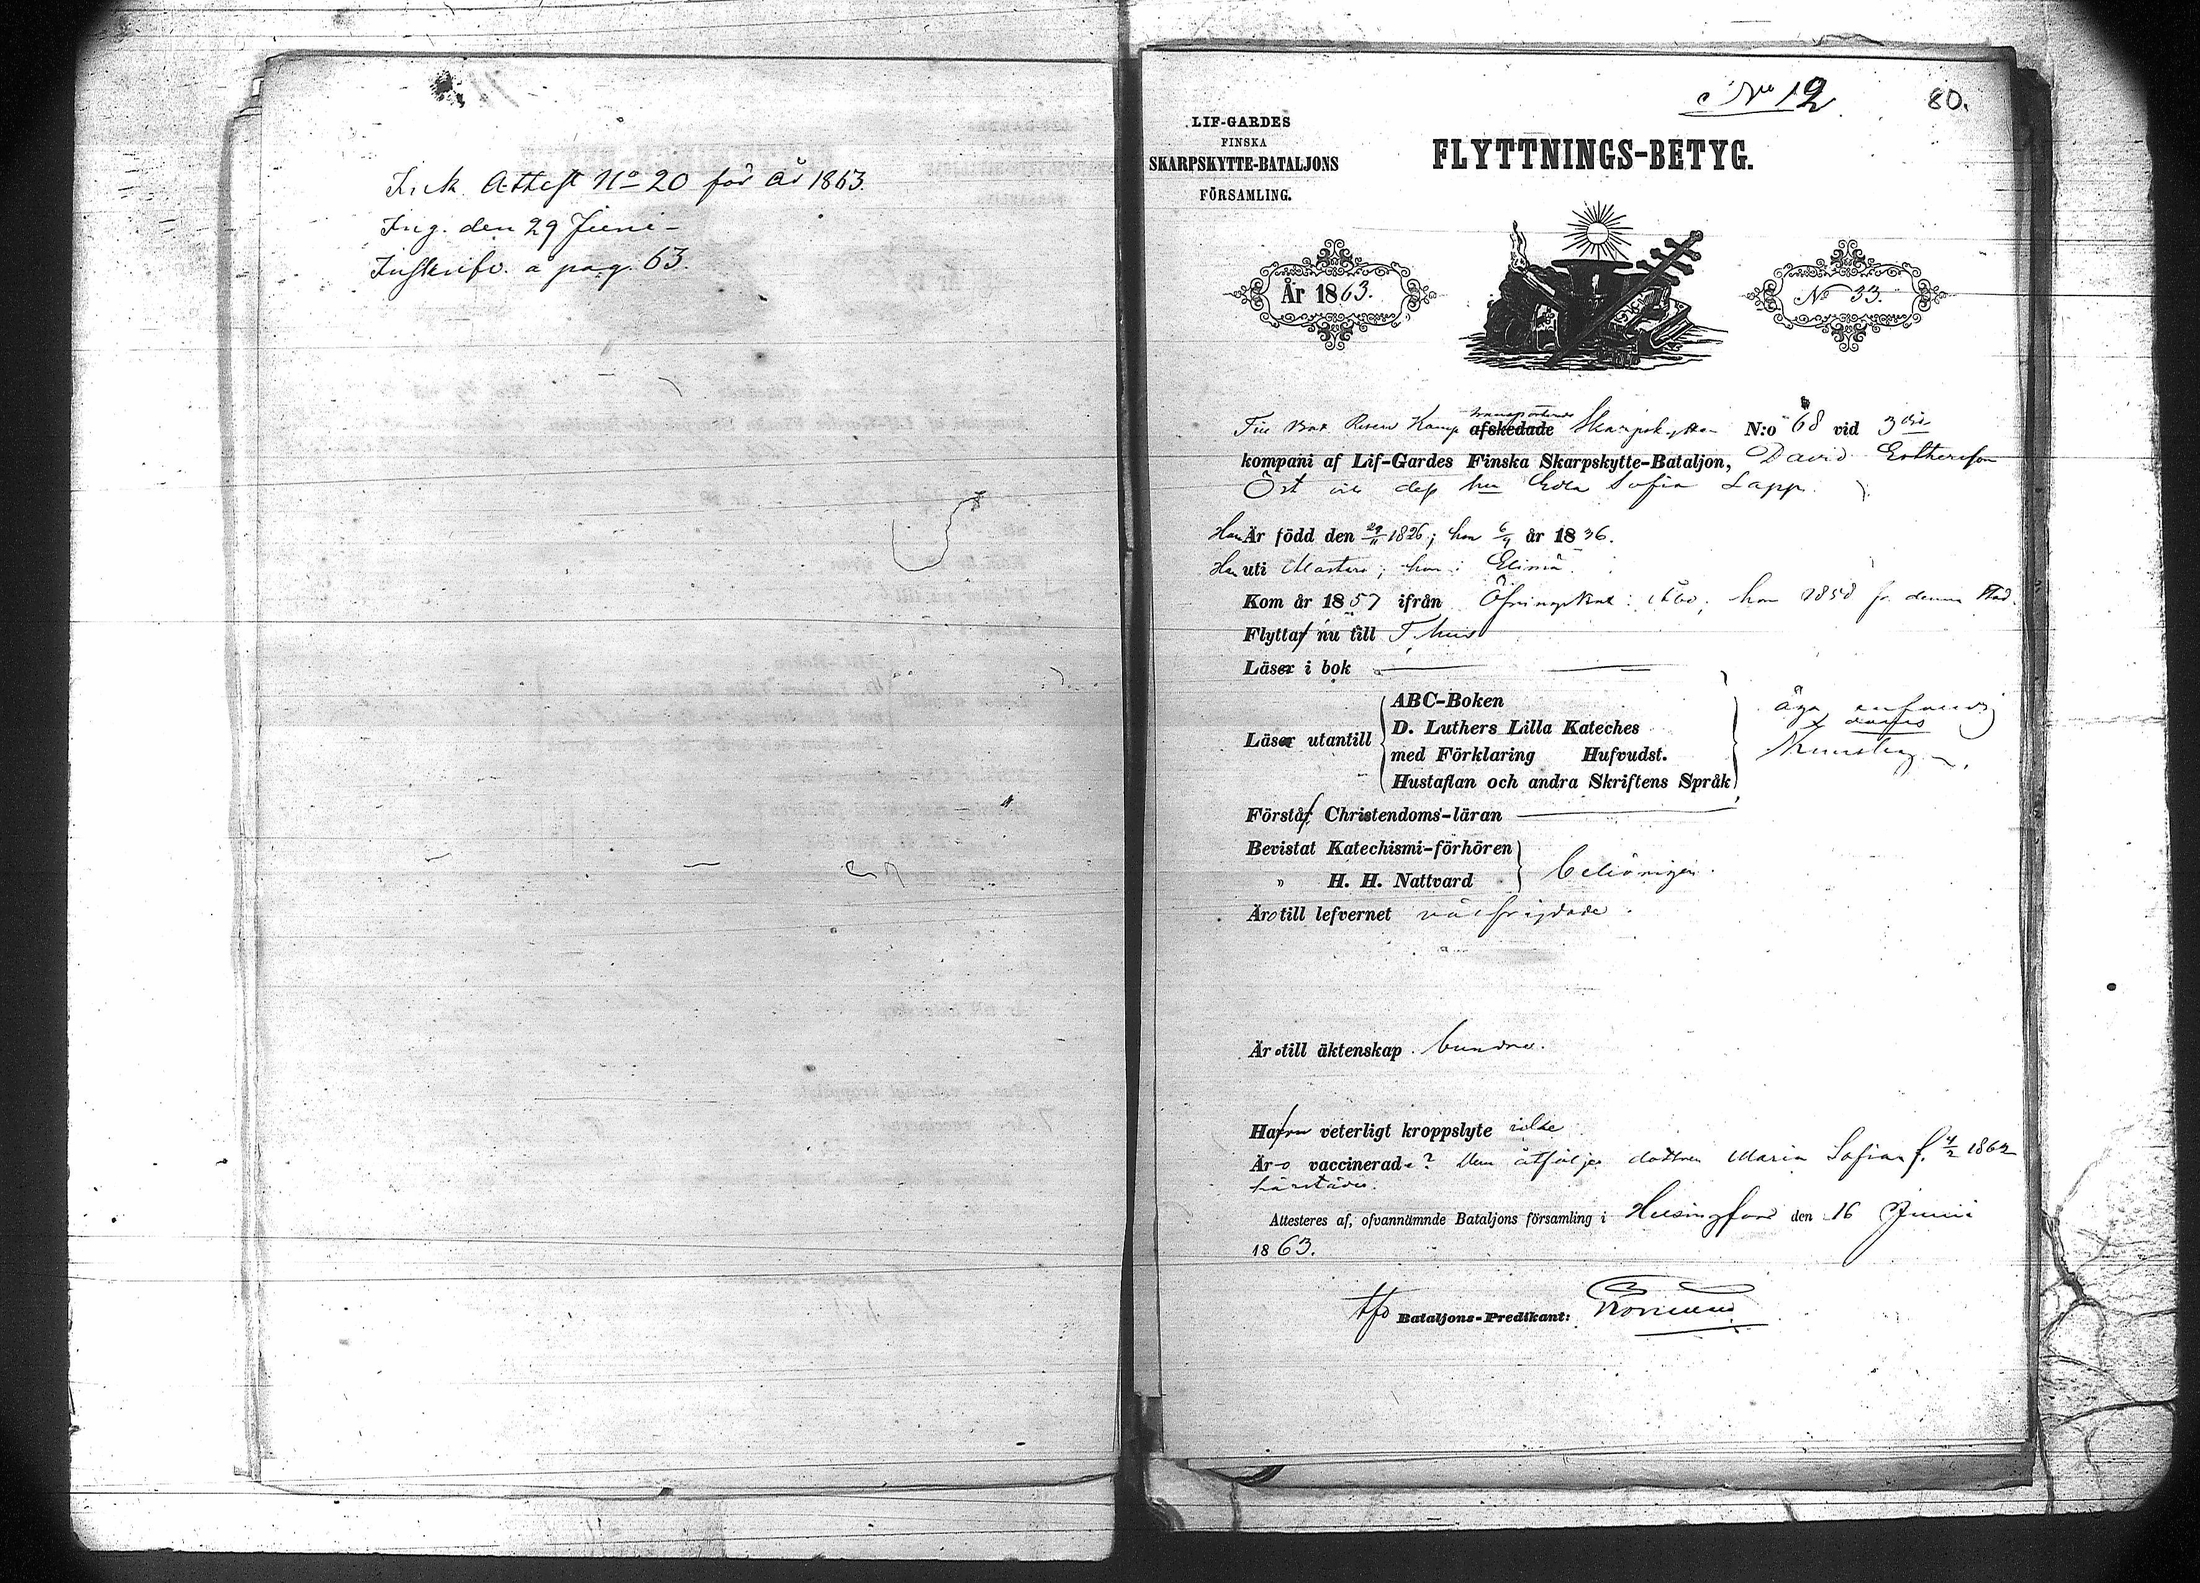 Ink. Attest No 20 för år 1863.
Ing. den 29 Juni
Inskrifv. å pag. 63.
No 12
80.
LIF-GARDES
FINSKA
SKARPSKYTTE-BATALJONS
FÖRSAMLING.
FLYTTNINGS-BETYG.
År 1863.
No 33.
Till Reserv Komp transporterade afskedade Skarpskytten N:o 68 vid 3die
kompani af Lif-Gardes Finska Skarpskytte-Bataljon, David
Öst och dess hu Eva Sofia Lapp.
Han Är född den 29/11 1826; hon 6/9 år 1836.
Han uti ; hon i Elimä.
Kom år 1857 ifrån Åbo; hon 1858 fr. denna stad.
Flytta nu till T. hus
Läser i bok
Läser utantill
ABC-Boken
D. Luthers Lilla Kateches
med Förklaring Hufvudst.
Hustaflan och andra Skriftens Språk
äga enfaldig
Kunskap
Förstår Christendoms-läran
Bevistat Katechismi-förhören
" H. H. Nattvard
behörigen.
Äro till lefvernet välfrejdade.
Äro till äktenskap bundna.
Hafva veterligt kroppslyte icke
Äro vaccinerade? Dem åtföljer dottren Maria Sofia f. 4/2 1862
härstädes.
Attesteres af, ofvannämnde Bataljons församling i Helsingfors den 16 Junii
1863.
tfo Bataljons-Predikant: